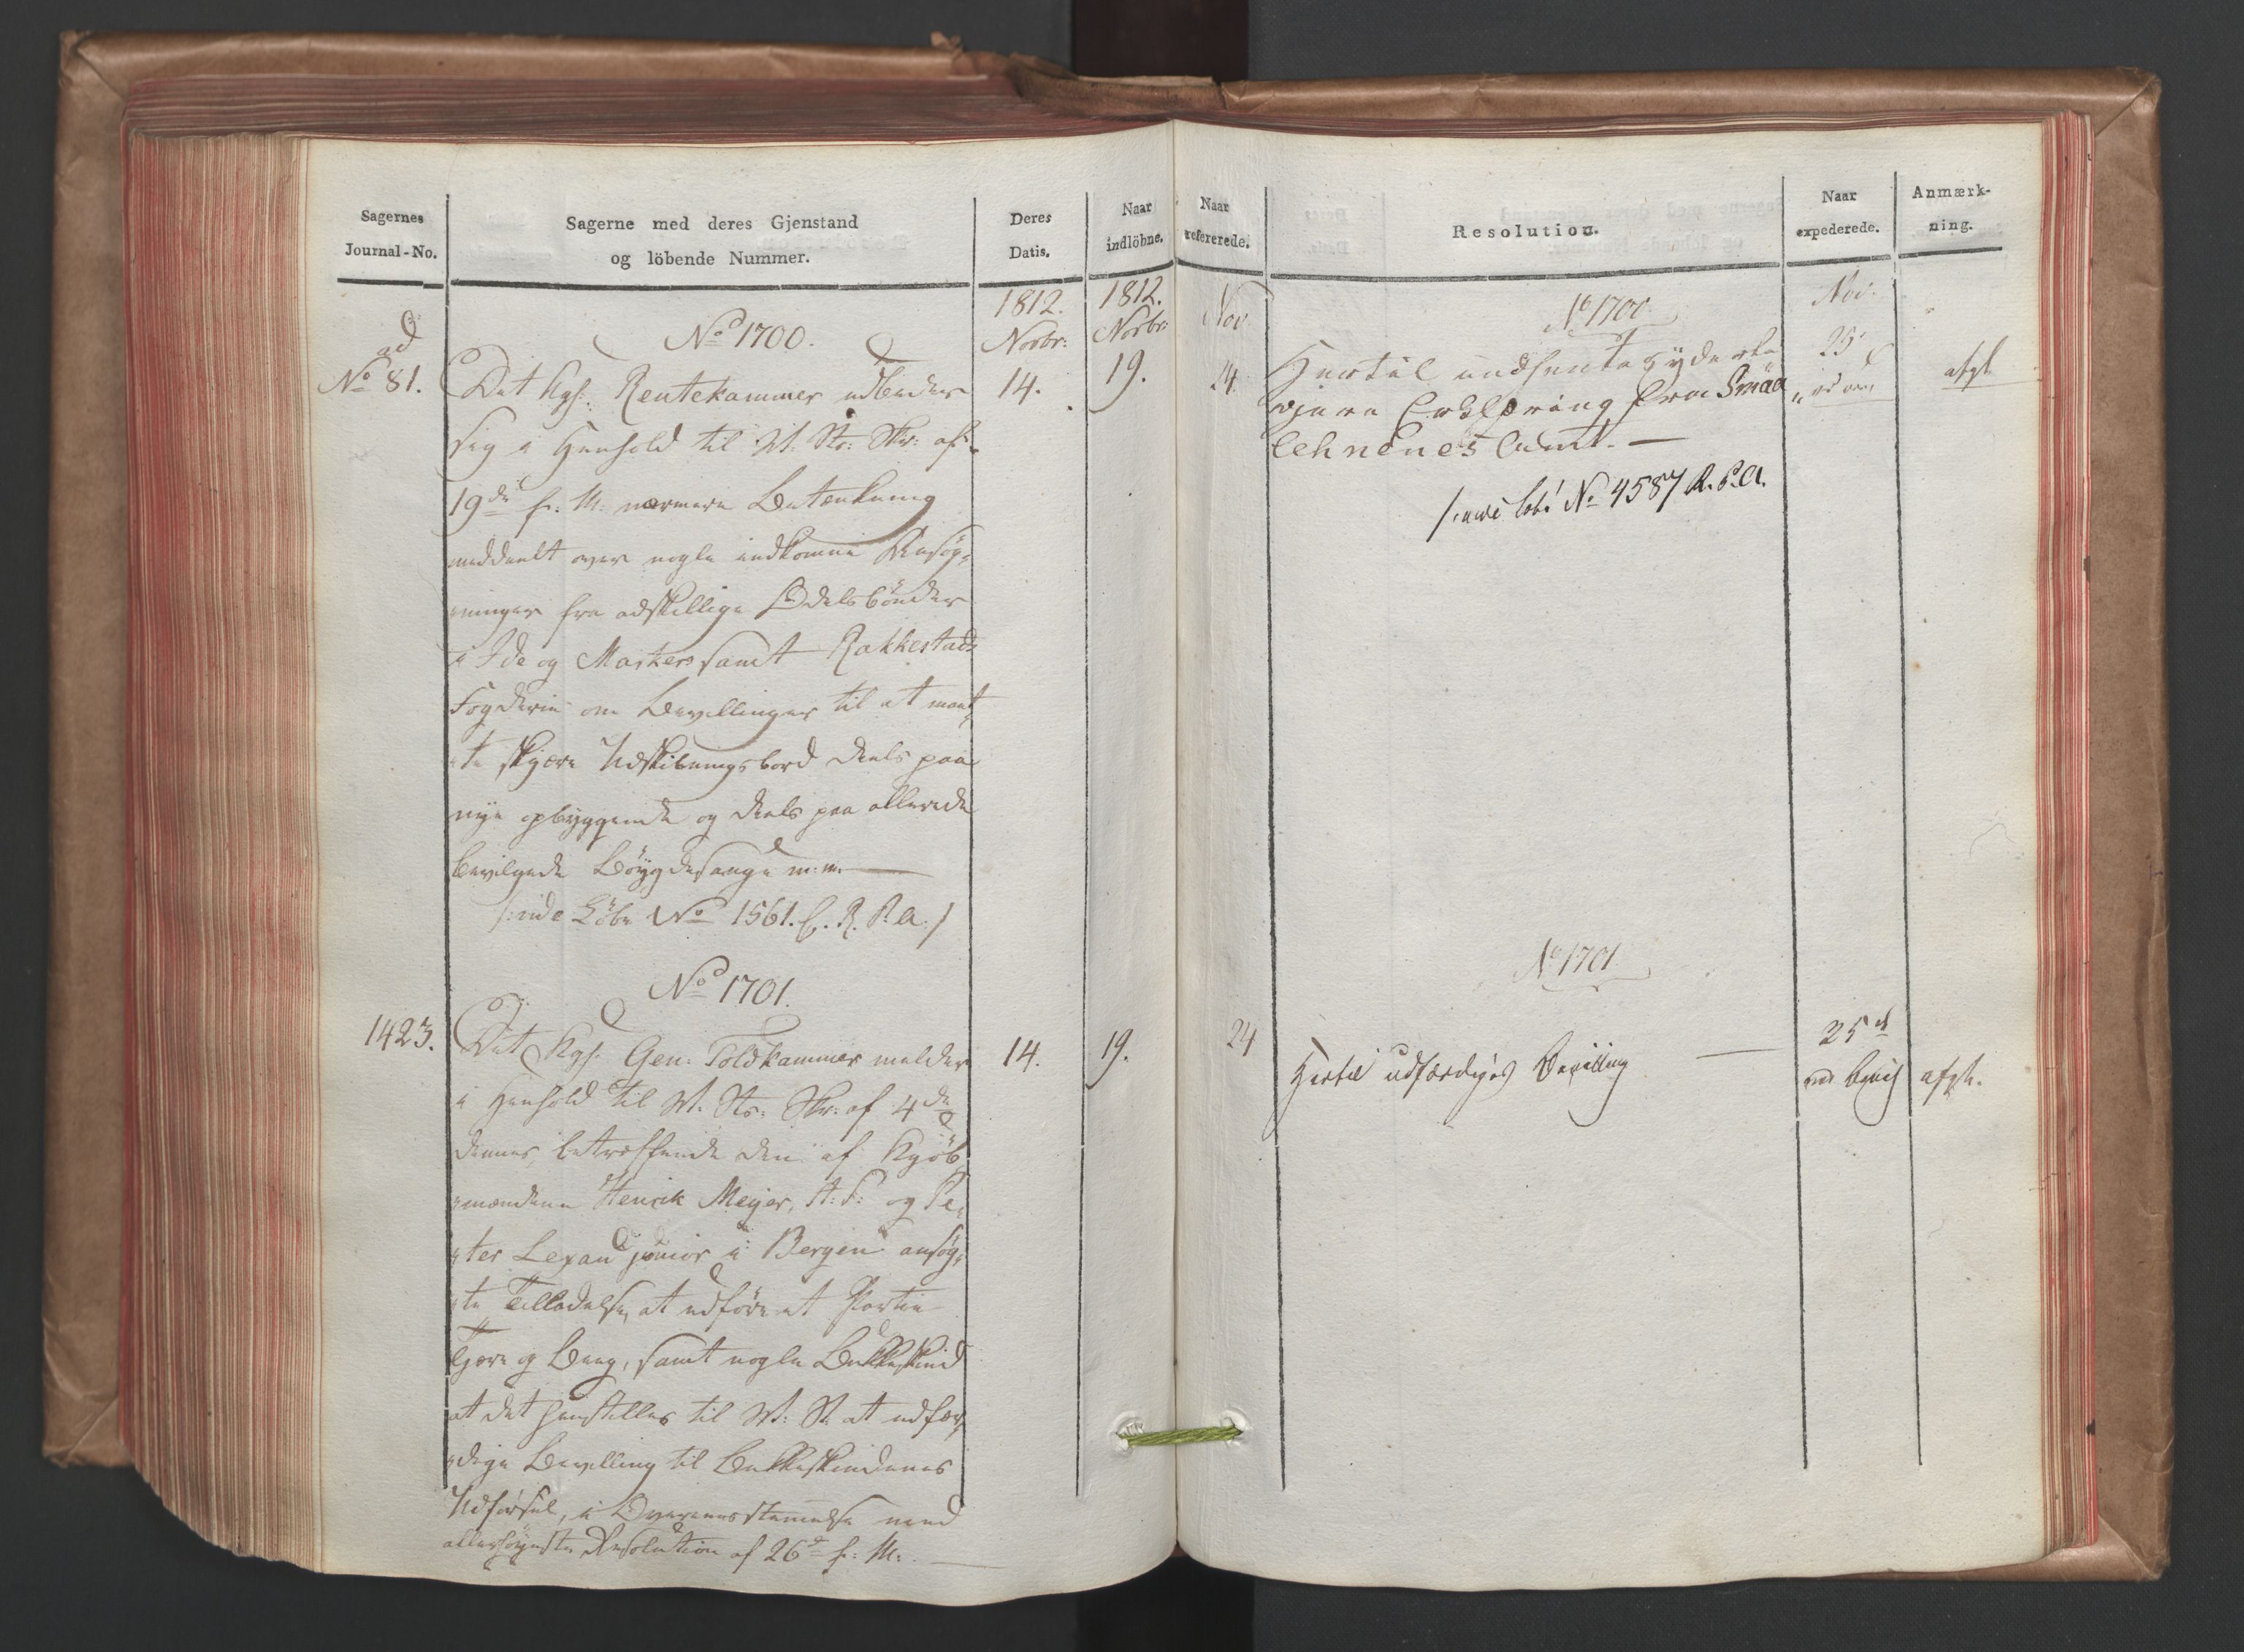 Sagernes
Journal-No.
Sagerne med deres Gjenstand
og löbende Nummer.
Deres
Datis.
Naar
indlöbne.
1812.
Novbr:
1812.
Novbr:
No 1700.
ad
No 81.
14.
19.
Det Kgl: Rentekammer udbeder
sig i Henhold til St. Skr: af
19de f. M: nærmere Betænkning
meddeelt over nogle indkomne Ansøg-
ninger fra adskillige Odelsbönder
i Ide og Markers samt Rakkestads
Fogderie om Bevillinger til at maat-
te skjære Udskibningsbord deels paa
nye opbyggende og deels paa allerede
bevilgede Bøygdesauge m: m.
/: vide Löbe No 1561. C. R. P. A. /
No 1701.
1423.
14.
19.
Det Kgl. Gen: Toldkammer melder
i Henhold til St: Skr: af 4de
dennes, betreffende den af Kjöb-
mændene Henrik Meyer, H: S: og Pe-
ter Lexau junior i Bergen ansøg-
te Tilladelse, at udføre et Partie
Tjære og Beeg, samt nogle Bukkeskind
at det henstilles til St: at udfær-
dige Bevilling til Bukkeskindenes
Udførsel, i Overeensstemmelse med
allerhøyeste Resolution af 26de f: M:
Naar
refererede.
Resolution.
Naar
expederede.
Anmærk-
ning.
Nov
No 1700
Nov.
24.
25
afgl
Hertil indhentes yderli
gere Erklæring fra Smaa
lehnenes Amt. —
Löb: No 4587 R. P. A.
No 1701
24
Hertil udfærdiges Bevilling
25
afgl.